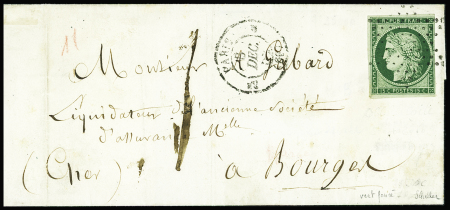 11
PARIS
DEC.
REPUB. FRANC.
15 C. POSTES 15 C.
Monsieur Abard
1
Liquidateur de l'ancienne Société
d'assurance Mlle
(Cher) à Bourges
vert foncé